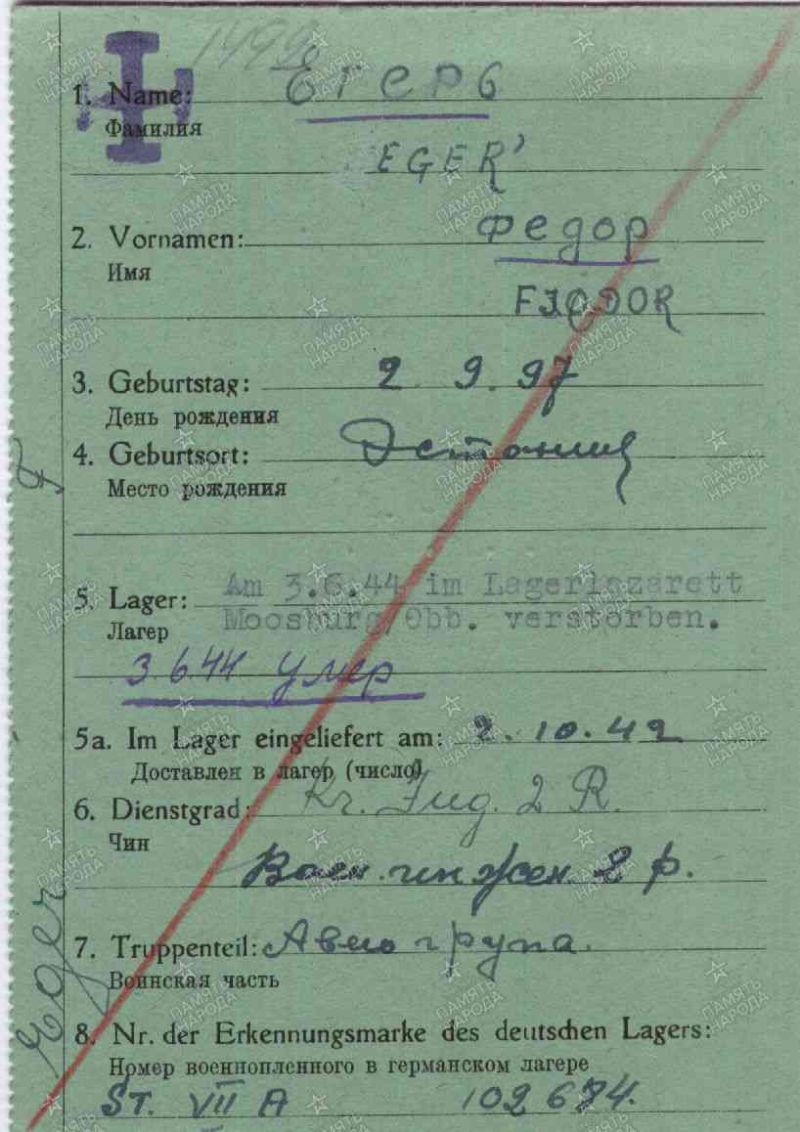 1. Name: Егерь
Фамилия
EGER'
2. Vornamen: Федор
Имя
FJODOR
3. Geburtstag: 2. 9. 97
День рождения
4. Geburtsort: Эстония
Место рождения
5. Lager: Am 3.6.44 im Lagerlazarett
Лагер Moosburg/Obb. verstorben.
3 6 44 умер
5a. Im Lager eingeliefert am: 2. 10. 42
Доставлен в лагер (число)
6. Dienstgrad: Kr. Jng. 2 R.
Чин
Воен. инжен. 2 р.
7. Truppenteil: Авио група.
Воинская часть
8. Nr. der Erkennungsmarke des deutschen Lagers:
Номер военнопленного в германском лагере
ST. VII A 102674.
Eger F
ПАМЯТЬ НАРОДА